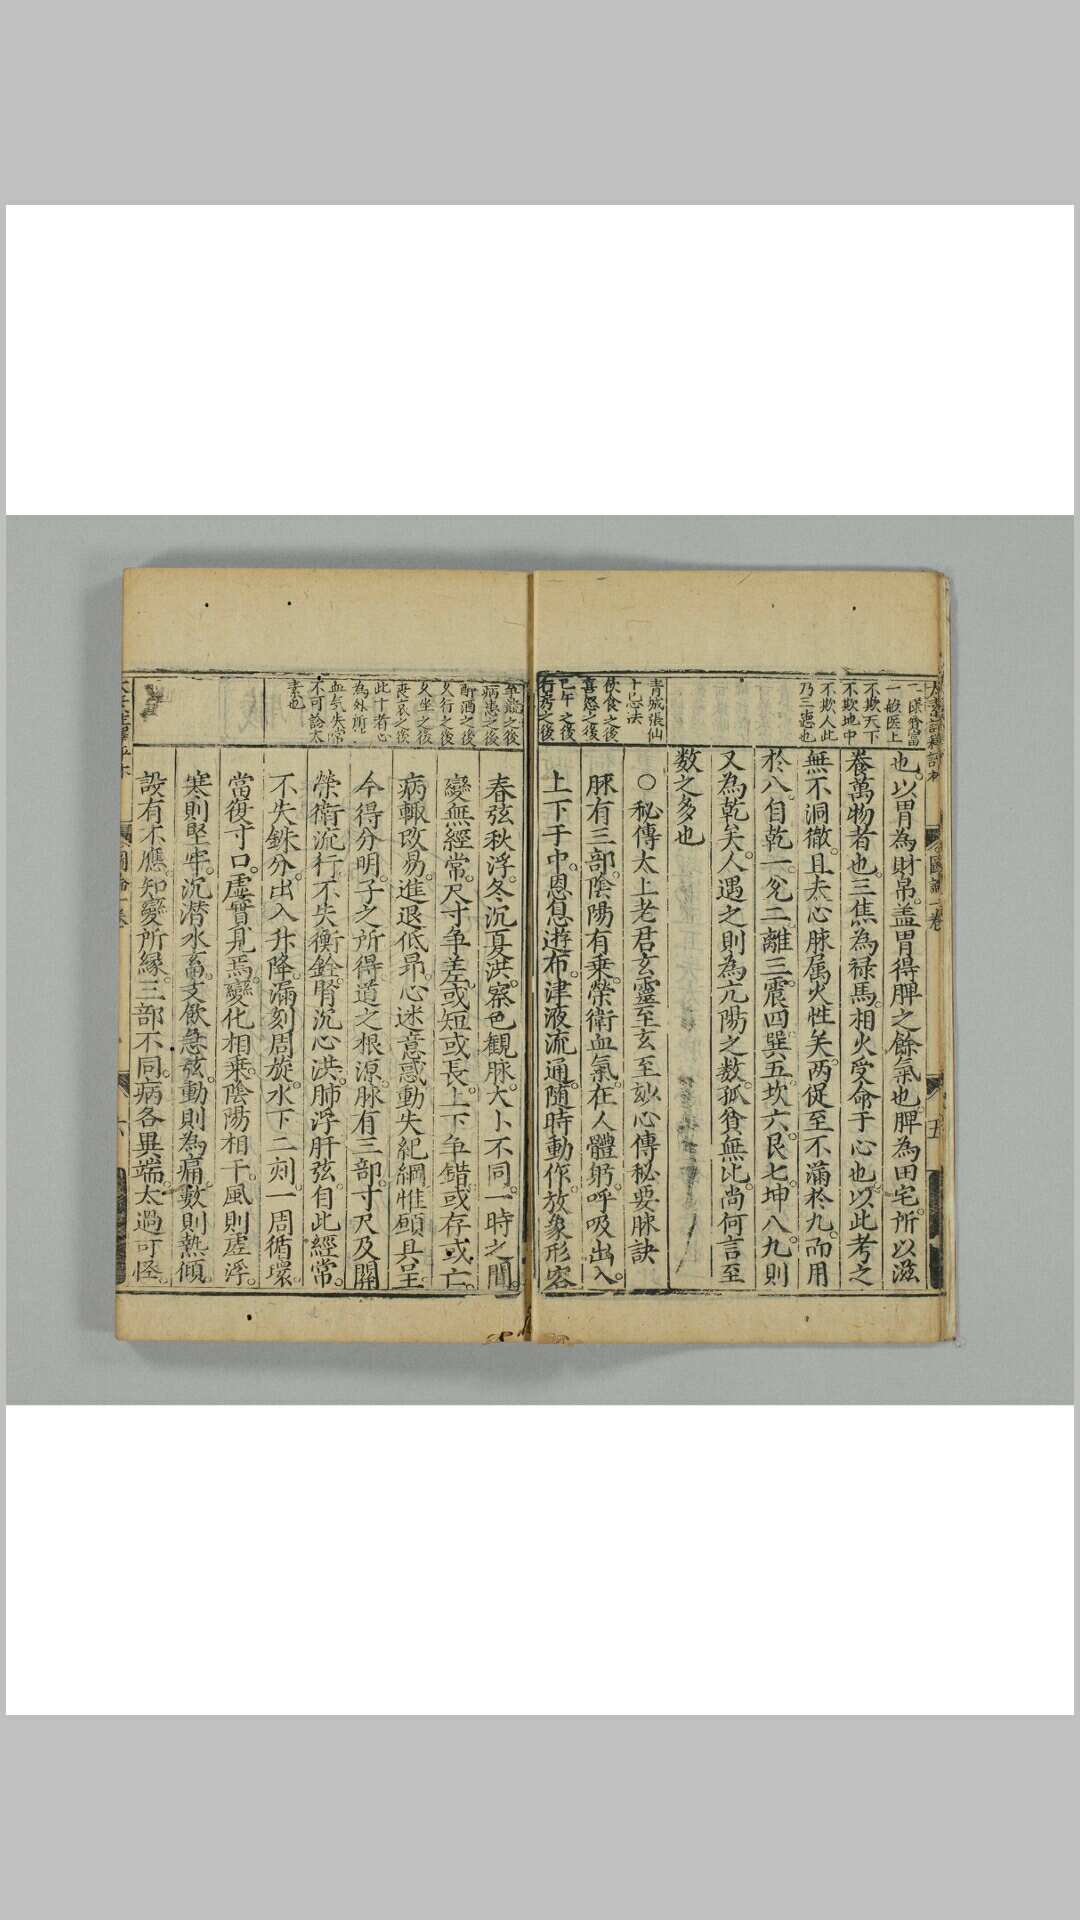 一般医上
不欺天下
不欺地中
不欺人此
乃三德也
青城張仙
十忌法
飲食之後
喜怒之後
已午之後
行房之後
也以胃為財帛盖胃得脾之餘氣也脾為田宅所以滋
養萬物者也三焦為禄馬相火受命于心也以此考之
無不洞徹且夫心脉属火性矣两從至不滿於九而用
於八自乾一兊二離三震四巽五坎六艮七坤八九則
又為乾矣人遇之則為亢陽之数孤貧無比尚何言至
数之多也
○秘傳太上老君玄靈至玄至玅心傳秘要脉訣
脉有三部陰陽有乗榮衛血氣在人體躬呼吸出入
上下于中恩息遊布津液流通隨時動作放象形容
病患之後
酌酒之後
久行之後
久坐之後
更衣之後
此十者心
為外所
血气失常
不可診太
素也
春弦秋浮冬沉夏洪察色觀脉大小不同一時之間
變無經常尺寸争差或短或長上下争錯或存或亡
病輙改易進退低昻心迷意惑動失紀綱惟頋具呈
今得分明子之所得道之根源脉有三部寸尺及關
榮衛流行不失衡銓腎沉心洪肺浮肝弦自此經常
不失銖分出入升降漏刻周旋水下二刻一周循環
當復寸口虚實見焉變化相乗陰陽相干風則虚浮
寒則堅牢沉潜水畜支飲急弦動則為痛數則熱傾
設有不應知變所縁三部不同病各異端太過可怪